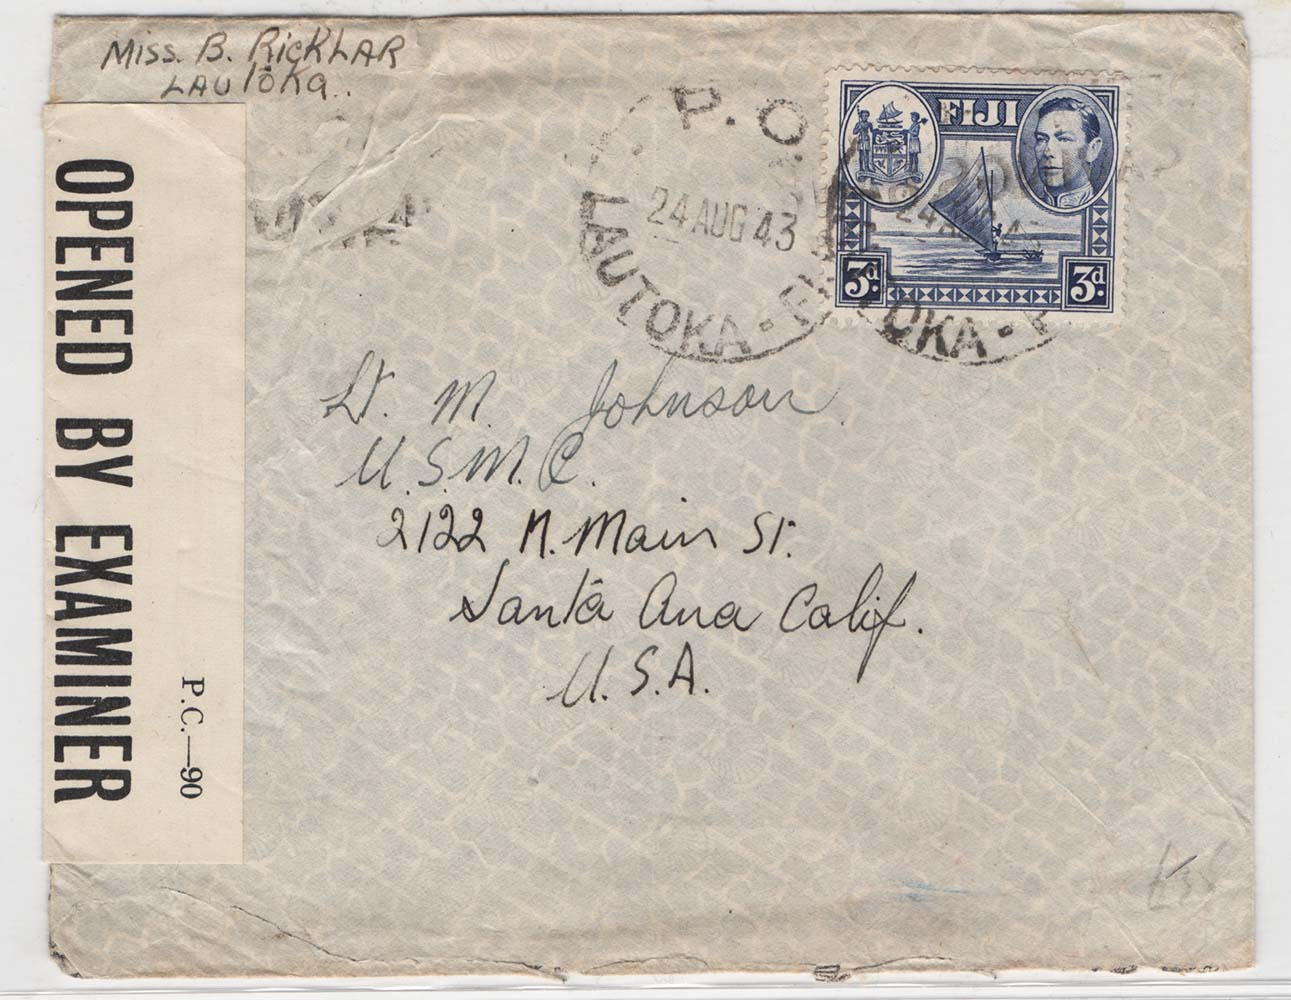 Miss. B. RicKLAR
LAUToKa..
OPENED BY EXAMINER
P.C.—90
P.O.
24 AUG 43
LAUTOKA - 
FIJI
3d.
3d.
24 
OKA - 
Lt. M. Johnson
U.S.M.C.
2122 N. Main St.
Santa Ana Calif.
U.S.A.